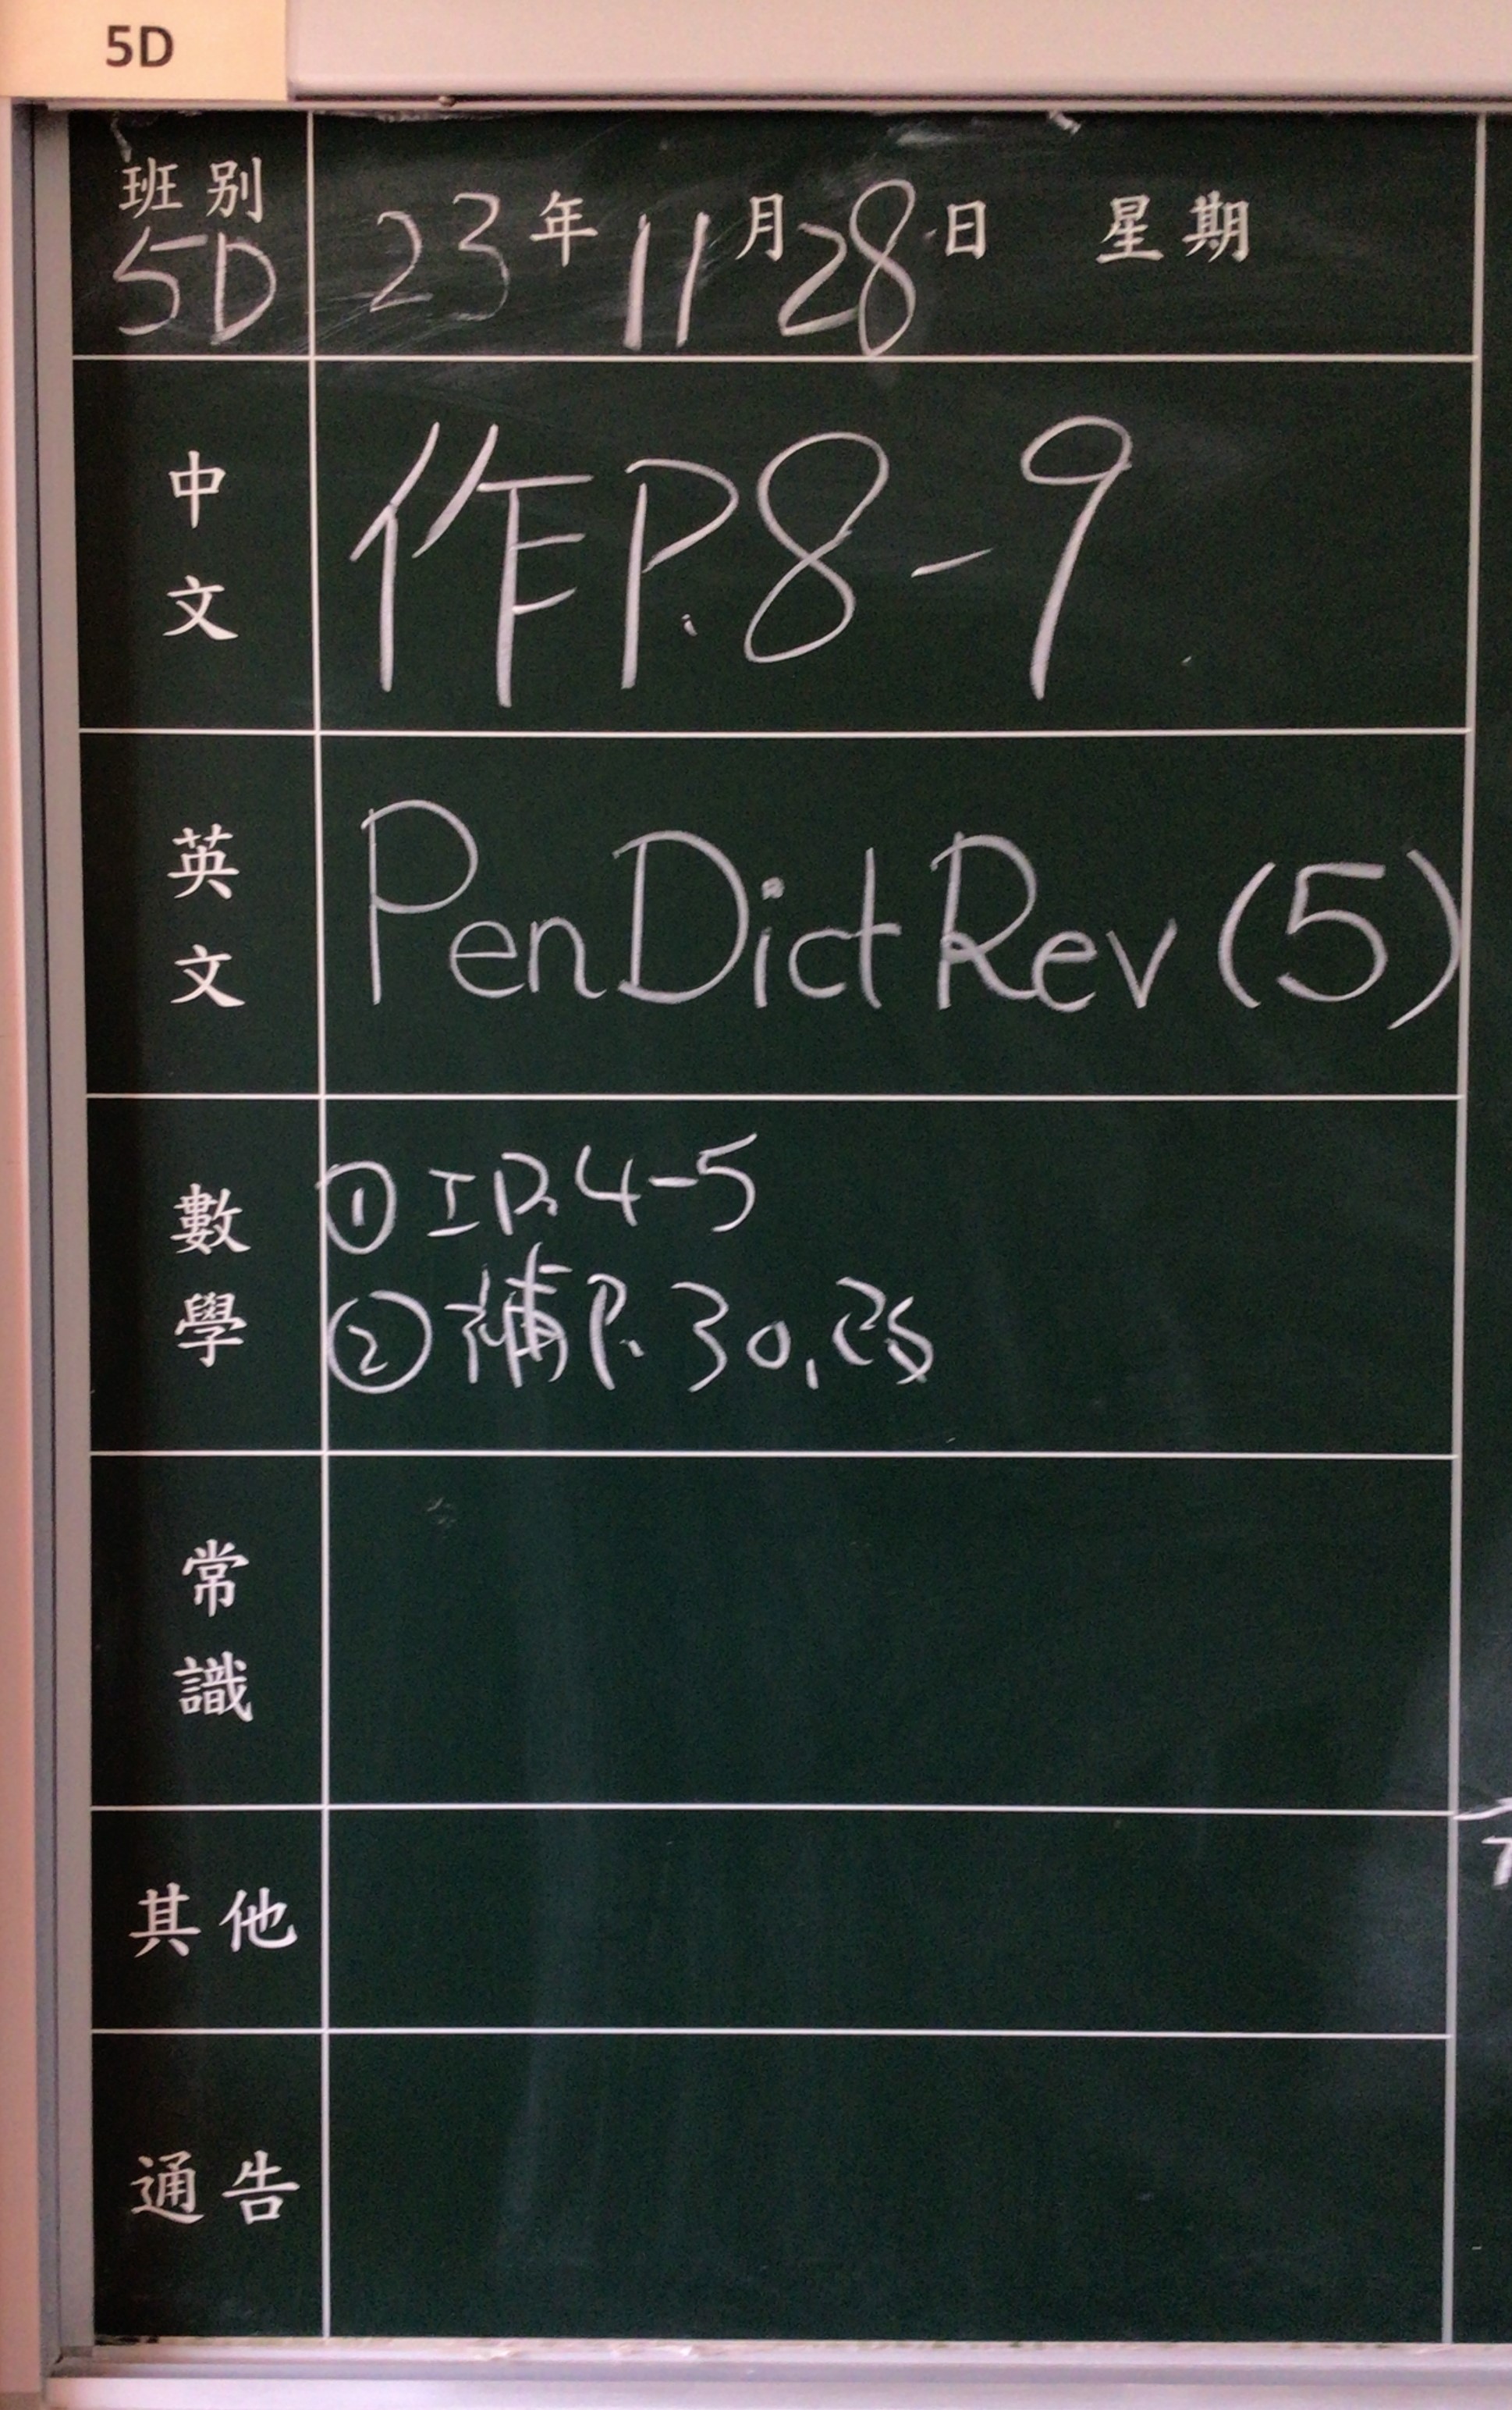 5D
班別 23年11月28日 星期
5D
中文 作P.8-9
英文 PenDictRev(5)
數學 ①工P.4-5
②補P.30,改
常識
其他
通告